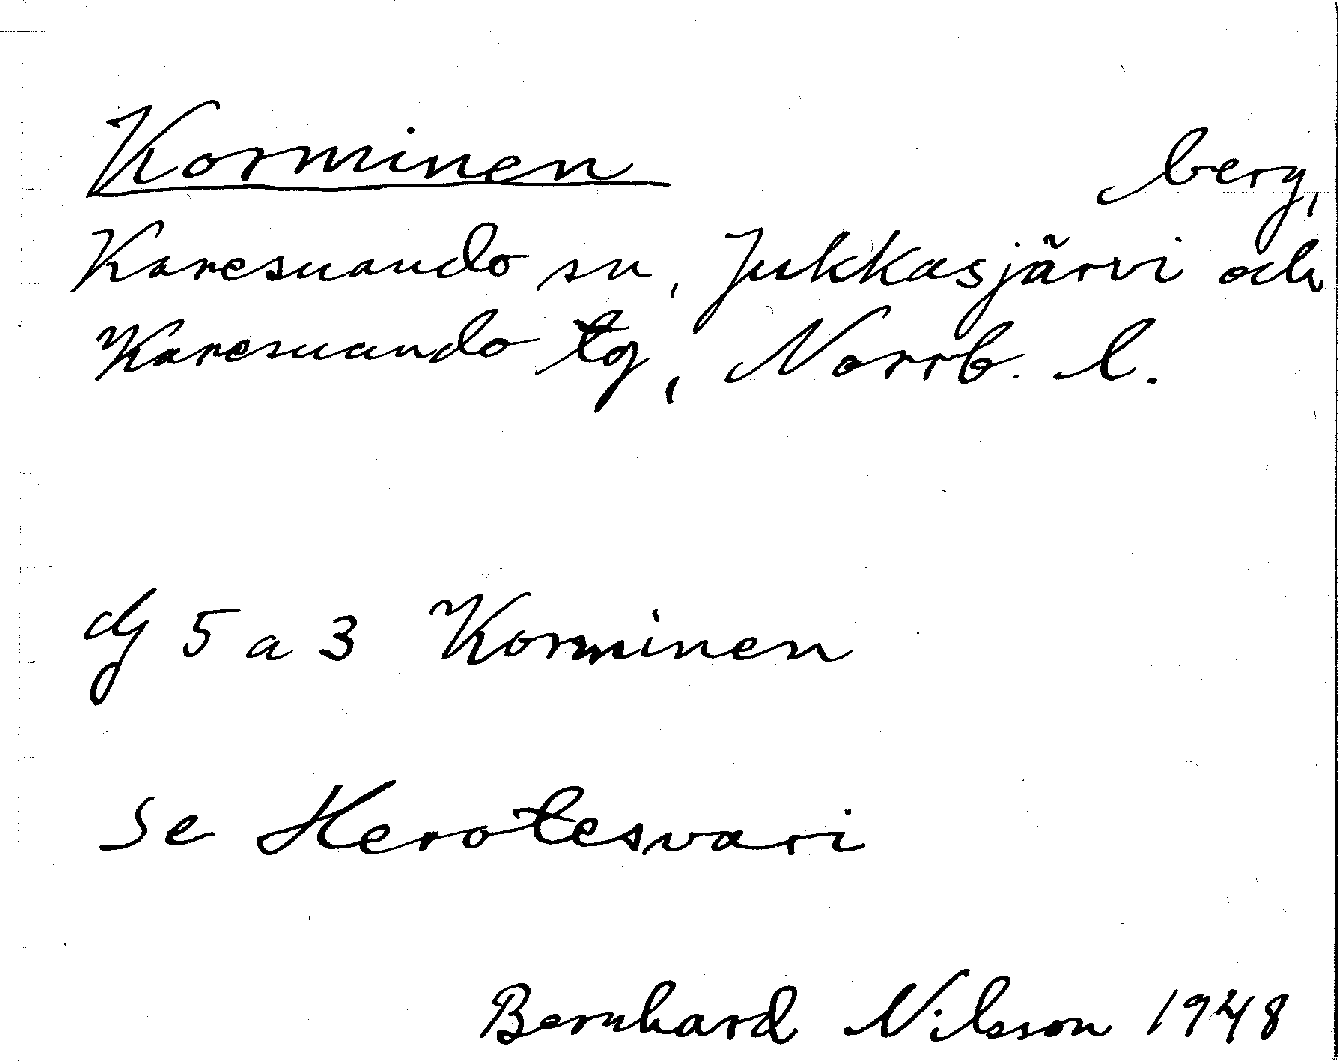 Korminen berg,
Karesuando sn, Jukkasjärvi och
Karesuando tg, Norrb. l.
dj 5 a 3 Korminen
Se Herotesvari
Bernhard Nilsson 1948